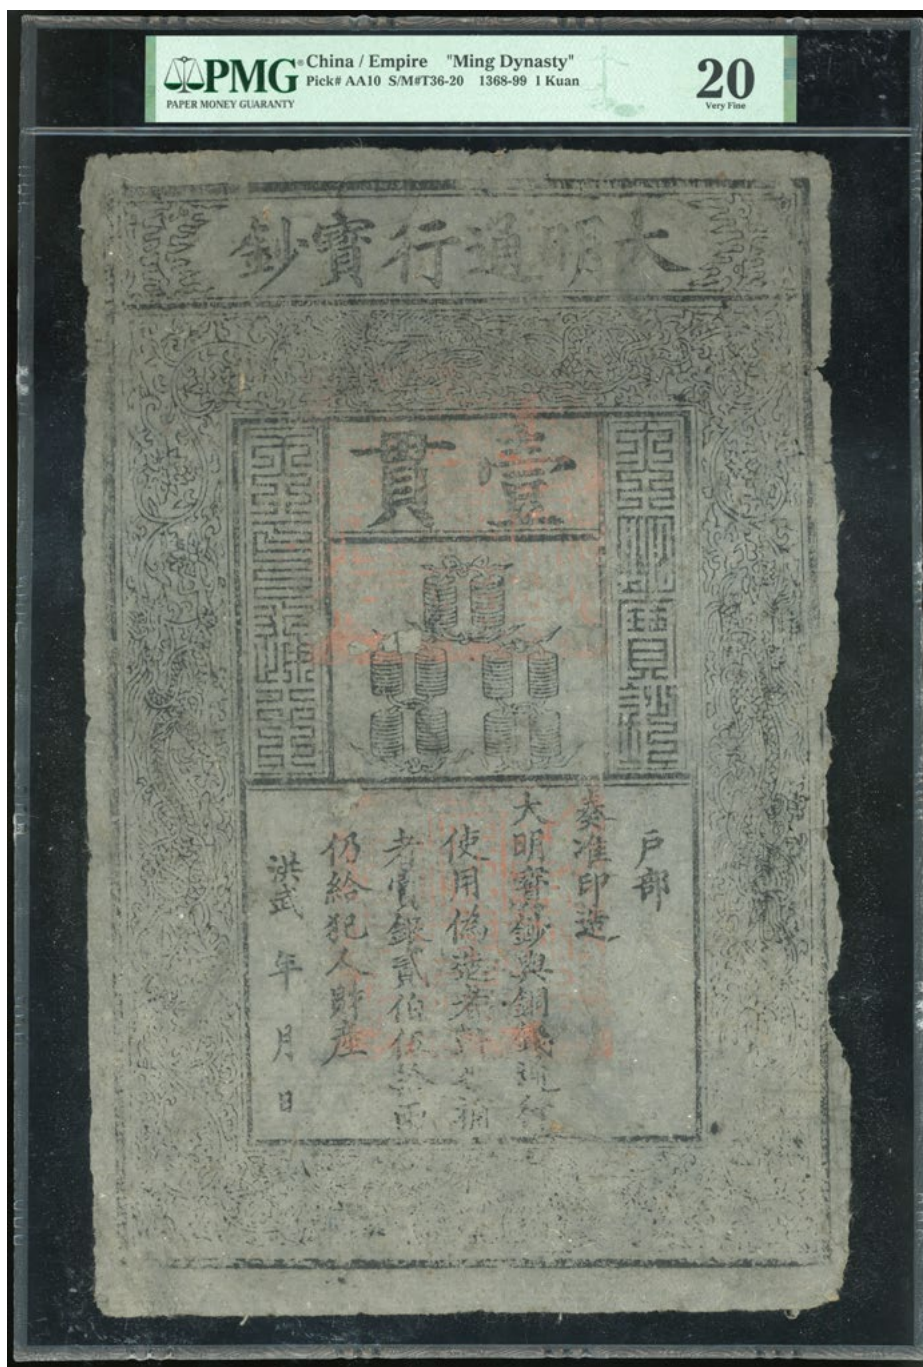 PMG
PAPER MONEY GUARANTY
China / Empire "Ming Dynasty"
Pick# AA10 S/M#T36-20 1368-99 1 Kuan
20
Very Fine
大明通行寶鈔
大明寶鈔
壹貫
天下通行
戶部
奏准印造
大明寶鈔與銅錢通行
使用偽造者斬捕
者賞銀貳伯伍兩
仍給犯人財產
洪武 年 月 日